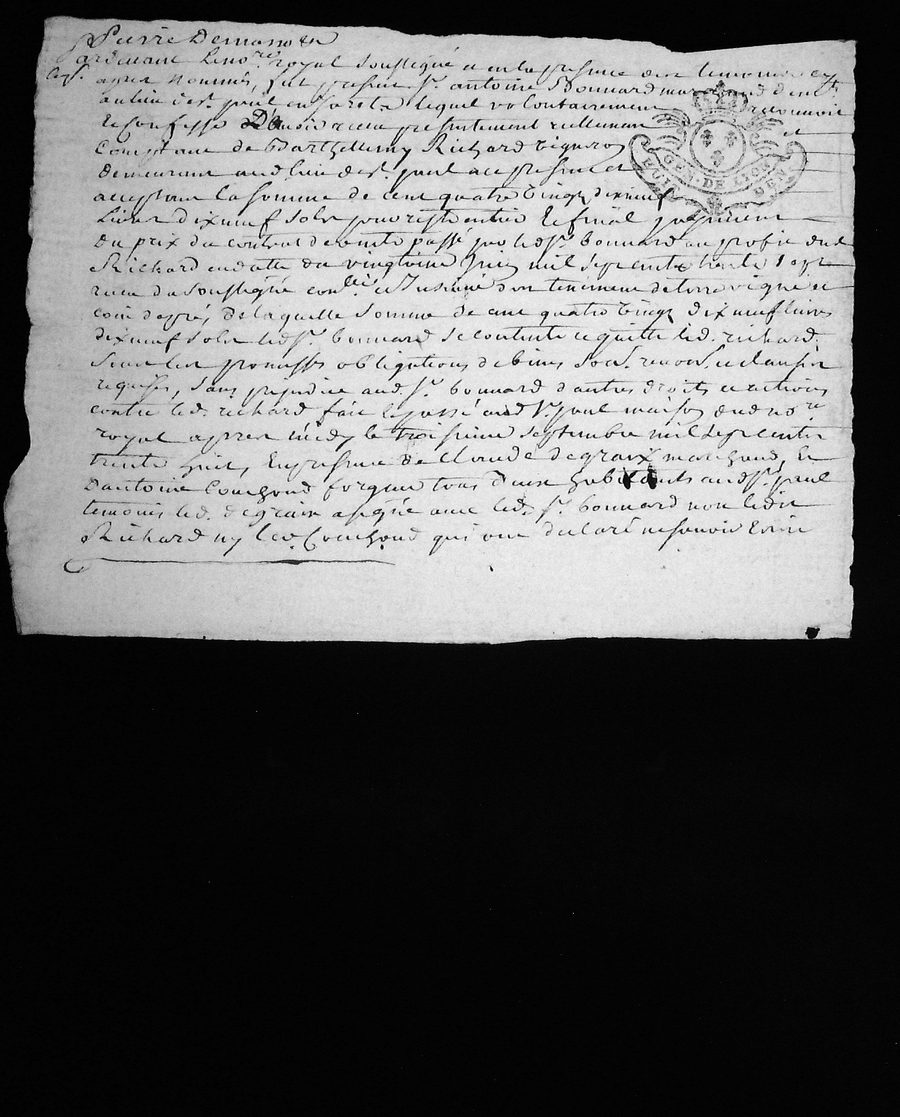 Pardevant le no.re royal soussigné et en la presence des temoins cy
apres nommés, fut present s.r antoine Bonnard marchand dem.t
au lieu de s.t paul en Jarest lequel volontairement reconnoit
et Confesse D'avoir receu presentement reellement et
Comptant de Barthellemy Richard vigneron
GEN. DE LION
demeurant aud. lieu de s.t paul acceptant et
la somme de cent quatre vingt dix neuf
Livres dix neuf sols pour reste entier et final payement
du prix du contrat de vente passé par led. s.r bonnard au profit dud.
Richard en datte du vingtième juin mil sept cents trente sept
receu du soussigné d'un tenement de terre vigne et
coin de pré, de laquelle somme de cent quatre vingt dix neuf livres
dix neuf sols led. s.r bonnard se contente et quitte led. richard
sous les promesses obligations de biens sous. renons. et clauses
requises, sans prejudice aud. s.r bonnard d'autres droits et actions
contre led. richard fait et passé aud. s.t paul maison dud. no.re
royal apres midy le troisieme septembre mil sept cents
trente huit, En presence de Claude degraix marchand, Et
d'antoine Couchoud forgeur tous deux habitants aud. s.t paul
temoins led. degraix a signé avec led. s.r bonnard non ledit
Richard ny led. Couchoud qui ont declaré ne sçavoir Ecrire